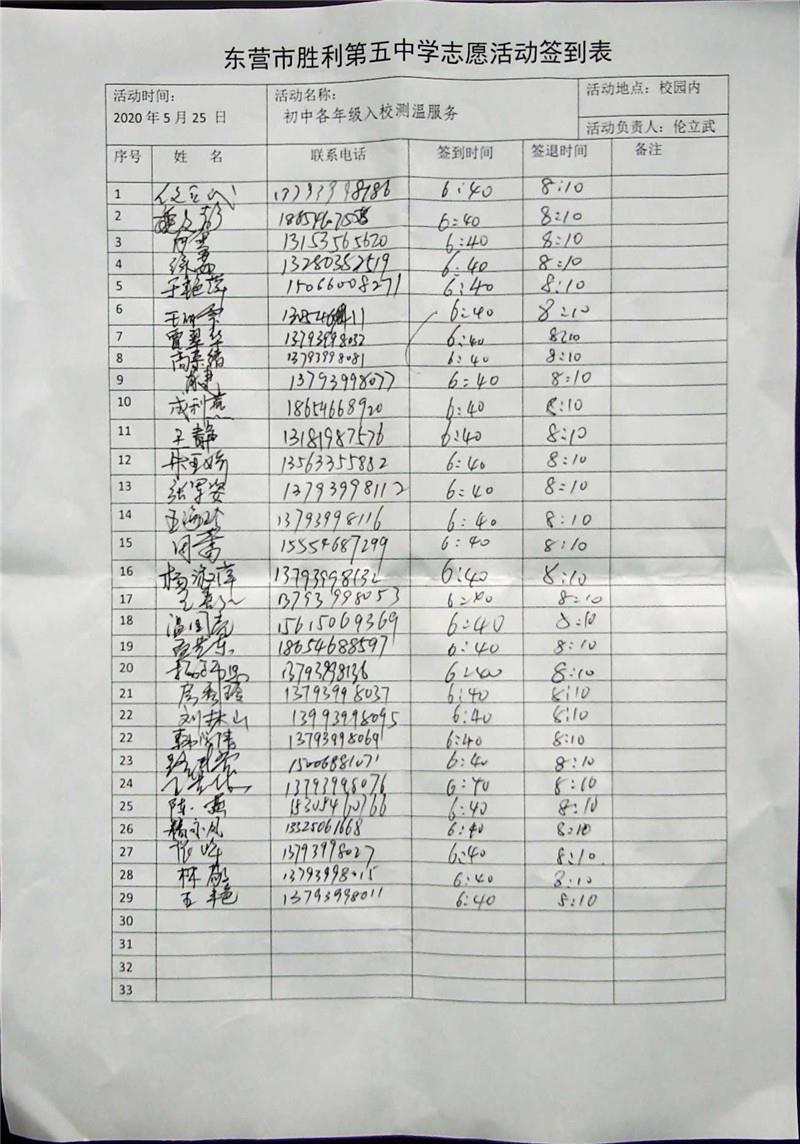 东营市胜利第五中学志愿活动签到表
活动时间： 活动名称： 活动地点：校园内
2020年5月25日 初中各年级入校测温服务
活动负责人：伦立武
序号 姓 名 联系电话 签到时间 签退时间 备注
1 伦立武 13793998186 6:40 8:10
2 6:40 8:10
3 13153565620 6:40 8:10
4 徐磊 13280352519 6:40 8:10
5 于艳萍 15066008271 6:40 8:10
6 6:40 8:10
7 贾翠华 13793998032 6:40 8:10
8 13793998081 6:40 8:10
9 13793998077 6:40 8:10
10 成利燕 18654668920 6:40 8:10
11 王静 13181987576 6:40 8:10
12 13563355882 6:40 8:10
13 张军安 13793998112 6:40 8:10
14 13793998116 6:40 8:10
15 周蕾 15554687299 6:40 8:10
16 13793998132 6:40 8:10
17 13793998053 6:40 8:10
18 温国亮 15615069369 6:40 8:10
19 18654688597 6:40 8:10
20 13793998136 6:40 8:10
21 13793998037 6:40 8:10
22 刘林山 13993998095 6:40 8:10
22 13793998069 6:40 8:10
23 15006881071 6:40 8:10
24 13793998076 6:40 8:10
25 6:40 8:10
26 13325061668 6:40 8:10
27 13793998027 6:40 8:10
28 林 13793998015 6:40 8:10
29 王艳 13793998011 6:40 8:10
30
31
32
33